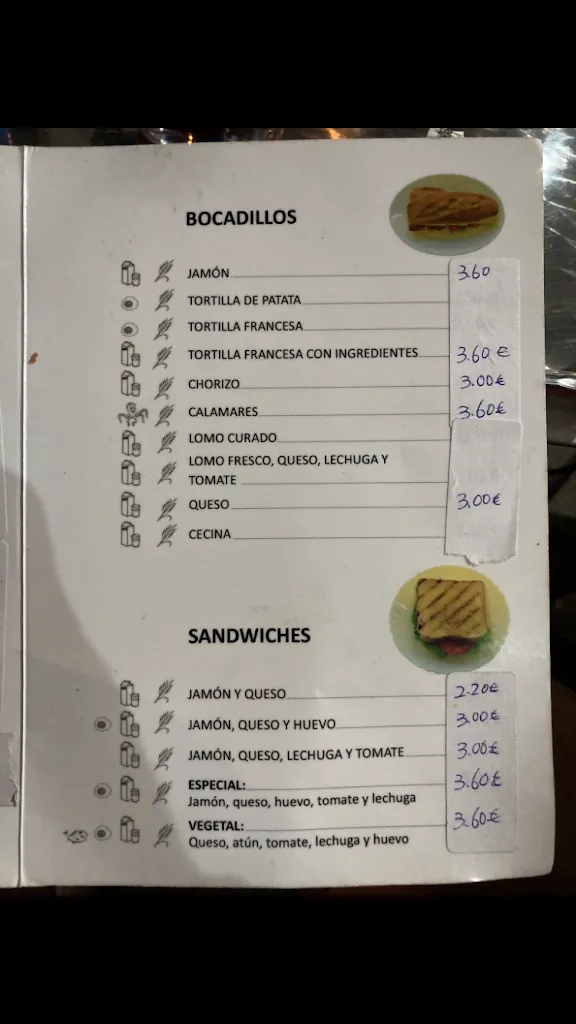 BOCADILLOS
JAMÓN 3.60
TORTILLA DE PATATA
TORTILLA FRANCESA
TORTILLA FRANCESA CON INGREDIENTES 3.60 €
CHORIZO 3.00€
CALAMARES 3.60€
LOMO CURADO
LOMO FRESCO, QUESO, LECHUGA Y
TOMATE
QUESO 3.00€
CECINA
SANDWICHES
JAMÓN Y QUESO 2.20€
JAMÓN, QUESO Y HUEVO 3.00€
JAMÓN, QUESO, LECHUGA Y TOMATE 3.00€
ESPECIAL: 3.60€
Jamón, queso, huevo, tomate y lechuga
VEGETAL: 3.60€
Queso, atún, tomate, lechuga y huevo